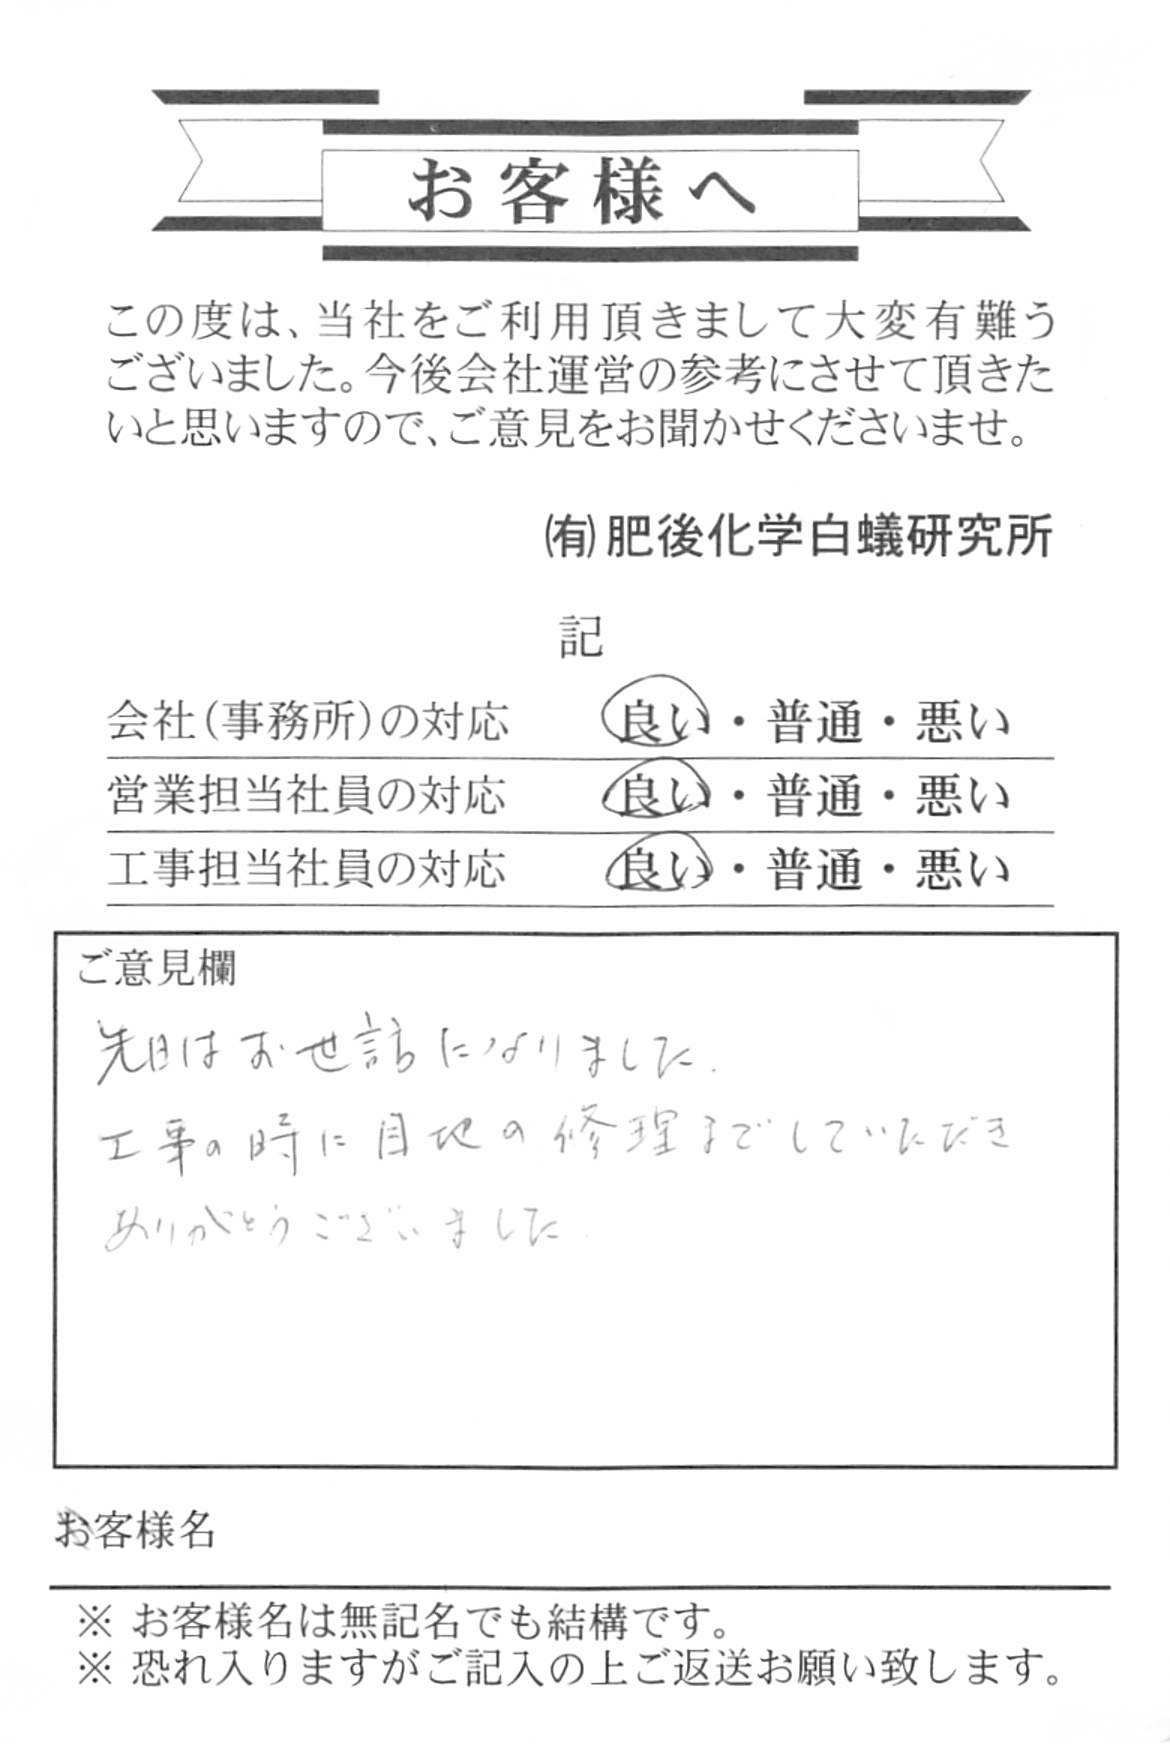 お客様へ
この度は、当社をご利用頂きまして大変有難う
ございました。今後会社運営の参考にさせて頂きた
いと思いますので、ご意見をお聞かせくださいませ。
㈲肥後化学白蟻研究所
記
会社(事務所)の対応 良い・普通・悪い
営業担当社員の対応 良い・普通・悪い
工事担当社員の対応 良い・普通・悪い
ご意見欄
先日はお世話になりました.
工事の時に目地の修理までしていただき
ありがとうございました.
お客様名
※ お客様名は無記名でも結構です。
※ 恐れ入りますがご記入の上ご返送お願い致します。